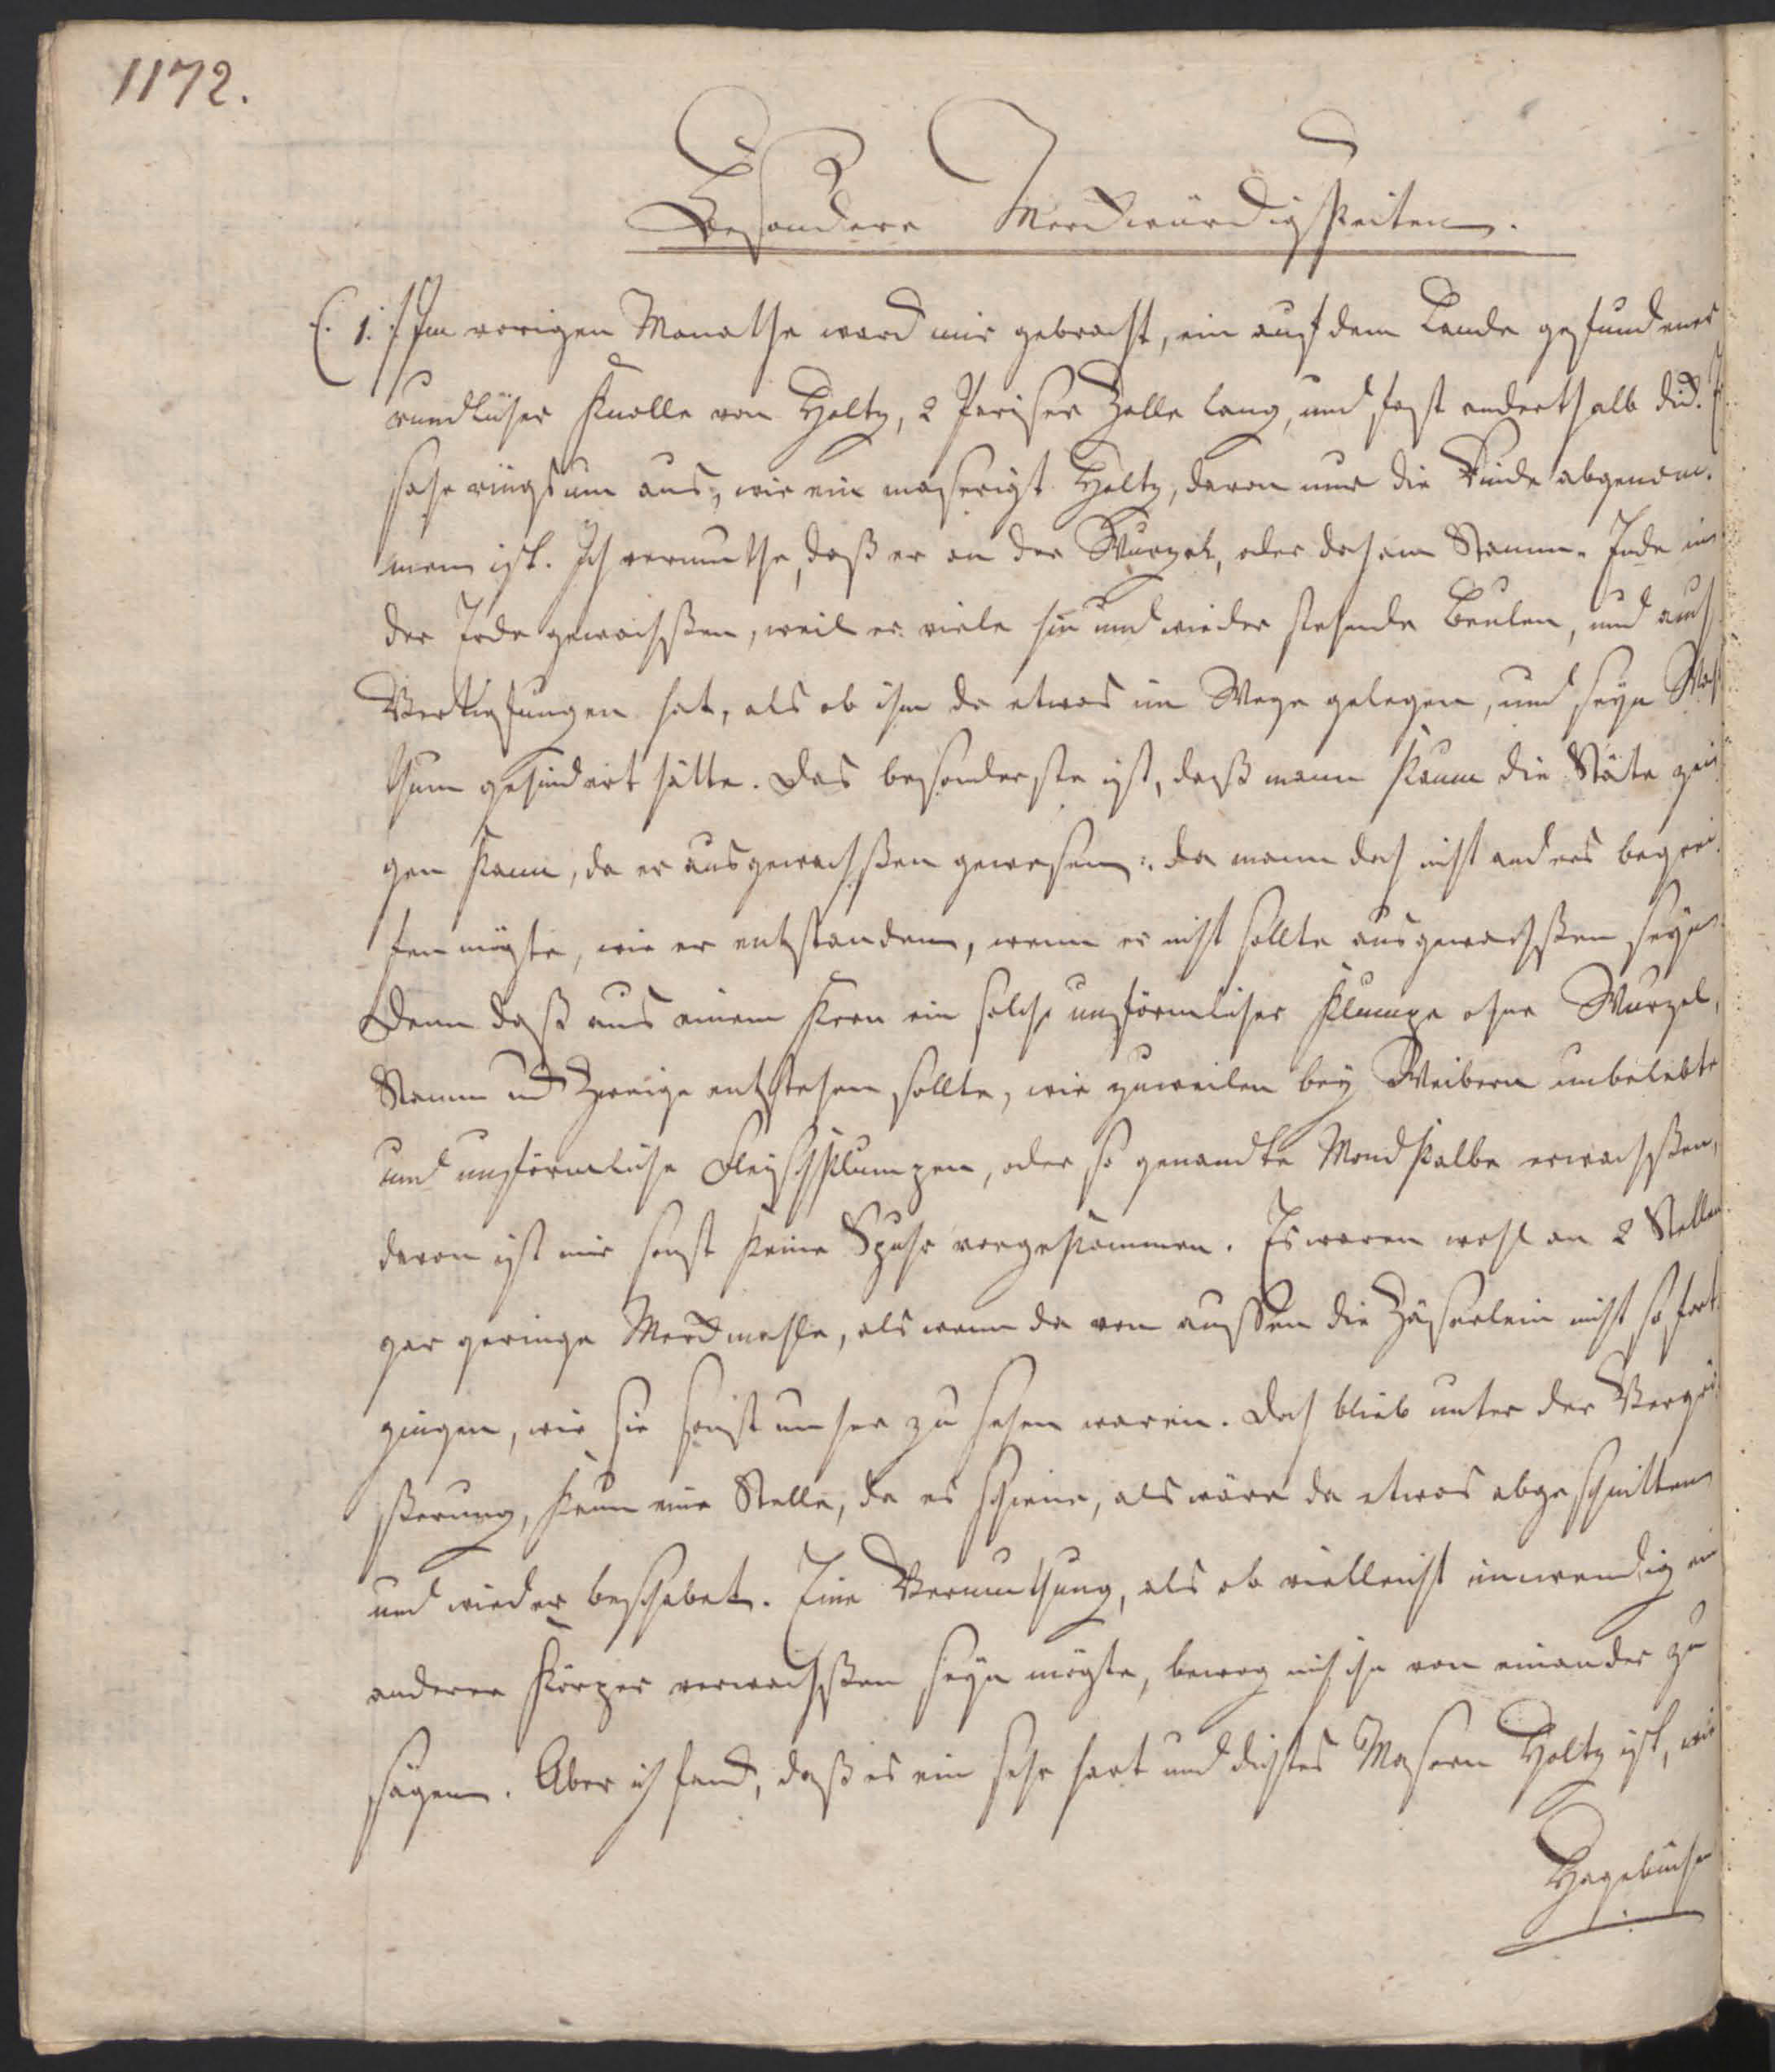 1172.
Besondere Merckwürdigkeiten.
(: 1. :) Im vorigen Monathe ward mir gebracht, ein auf dem Lande gefundener
rundlicher Knolle von Holtz, 2 Pariser Zolle lang, und fast anderthalb dick. Er
sahe ringsum aus, wie ein maserigt Holtz, davon nur die Rinde abgenom-
men ist. Ich vermuthe, daß er an der Wurzel, oder doch am Stamm-Ende in
der Erde gewachßen, weil er viele hin und wieder stehende Beulen, und auch
Vertiefungen hat, als ob ihm da etwas im Wege gelegen, und seyn Wachs-
thum gehindert hätte. Das besonderste ist, daß mann kaum die Stäte zei-
gen kann, da er ausgewachßen gewesen: da mann doch nicht anders begrei-
fen mögte, wie er entstanden, wenn er nicht sollte ausgewachßen seyn.
Denn daß aus einem Kern ein solch unförmlicher Klumpe ohne Wurzel,
Stamm und Zweige entstehen sollte, wie zuweilen bey Weibern unbelebte
und unförmliche Fleischklumpen, oder so genandte Mondkalbe erwachßen,
davon ist mir sonst keine Spuhr vorgekommen. Es waren wohl an 2 Stellen
gar geringe Merckmahle, als wenn da von aussen die Zäserlein nicht so fort
gingen, wie sie sonst umher zu sehen waren. Doch blieb unter der Vergrö-
ßerung, kaum eine Stelle, da es schiene, als wäre da etwas abgeschnitten
und wieder beschabet. Eine Vermuthung, als ob vielleicht inwendig ein
anderer Körper verwachßen seyn mögte, bewog mich ihn von einander zu
sägen. Aber ich fand, daß es ein sehr hart und dichtes Masern Holtz ist, wie
Hagebüchen